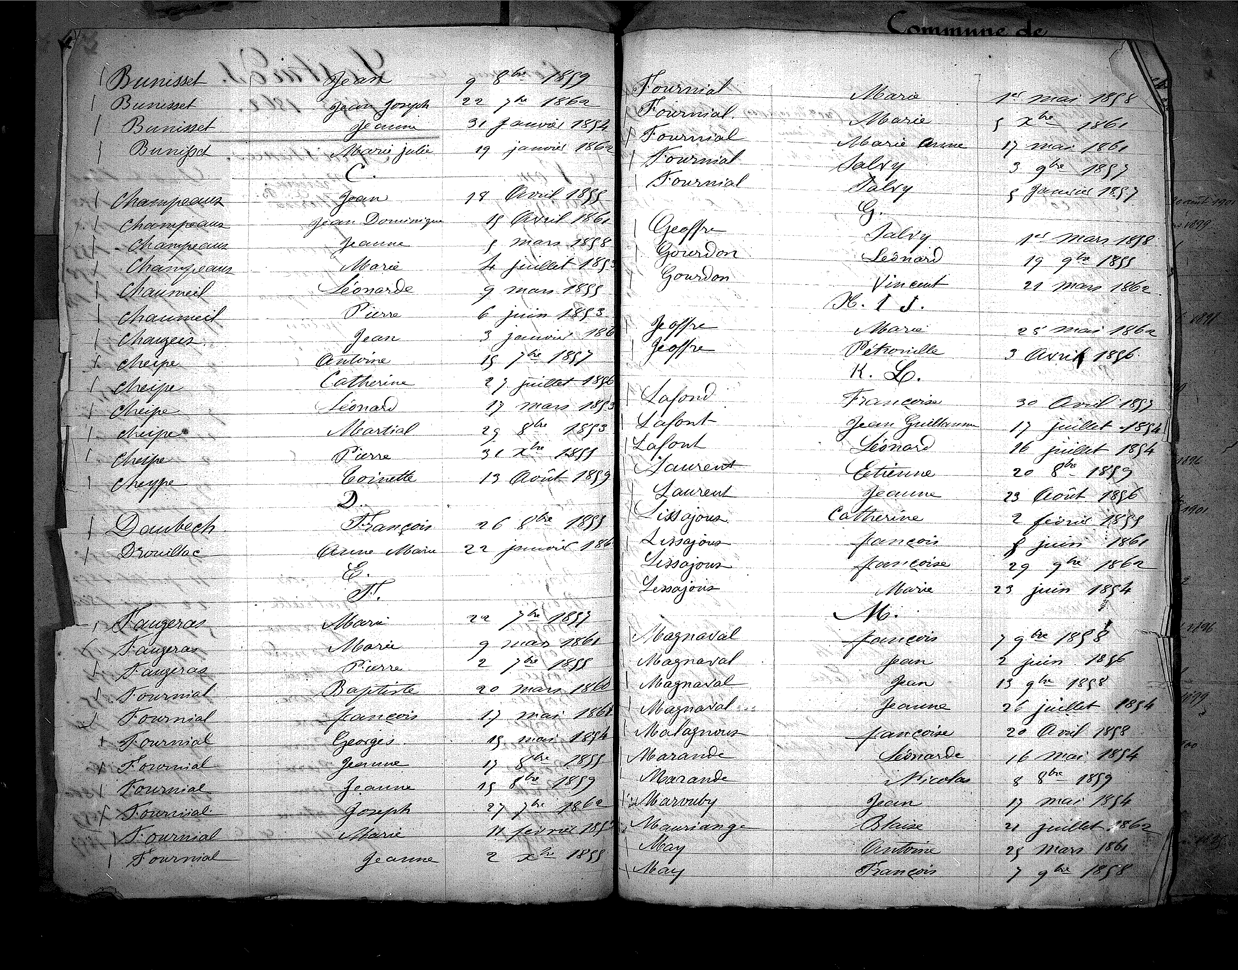 Commune de
Bunisset Jean 9 8bre 1859
Bunisset Jean Joseph 22 7bre 1862
Bunisset Jeanne 31 Janvier 1854
Bunisset Marie julie 19 janvier 1862
C.
Champeaux Jean 18 Avril 1855
Champeaux Jean Dominique 15 Avril 1861
Champeaux Jeanne 5 mars 1858
Champeaux Marie 4 juillet 1853
Chaumeil Léonarde 9 mars 1855
Chaumeil Pierre 6 juin 1853
Jean 3 janvier
Cheipe Antoine 15 7bre 1857
Cheipe Catherine 27 juillet 1856
Cheipe Léonard 17 mars 1853
Cheipe Martial 29 8bre 1853
Cheipe Pierre 31 Xbre 1855
Cheyppe Toinette 13 Août 1859
D.
Daubech François 26 8bre 1855
Drouillac Anne Marie 22 janvier
E.
F.
Faugeras Marie 22 7bre 1857
Faugeras Marie 9 mars 1861
Faugeras Pierre 2 7bre 1855
Fournial Baptiste 20 mars 1860
Fournial françois 17 mai
Fournial Georges 15 mai 1854
Fournial Jeanne 17 8bre 1855
Fournial Jeanne 15 8bre 1859
Fournial Joseph 27 7bre 1862
Fournial Marie 11 février
Fournial Jeanne 2 Xbre 1855
Fournial Marie 1er mai 1858
Fournial Marie 5 Xbre 1861
Fournial Marie Anne 17 mai 1861
Fournial Salvy 3 9bre 1857
Fournial Salvy 5 Janvier 1857
G.
Geoffre Salvy 1er mars 1858
Gourdon Léonard 19 9bre 1855
Gourdon Vincent 21 mars 1862
H. I J.
Jeoffre Marie 25 mai 1862
Jeoffre Pétronille 3 Avril 1856
K. L.
Lafond Françoise 30 Avril 1857
Lafont Jean Guillaume 17 juillet 1854
Lafont Léonard 16 juillet 1854
Laurent Etienne 20 8bre 1859
Laurent Jeanne 23 Août 1856
Lissajoux Catherine 2 février 1855
Lissajoux françois juin 1861
Lissajoux françoise 29 9bre 1862
Lissajoux Marie 23 juin 1854
M.
Magnaval françois 7 9bre 1858
Magnaval Jean 2 juin 1856
Magnaval Jean 13 9bre 1858
Magnaval Jeanne 26 juillet 1854
Malagnoux françoise 20 Avril 1858
Marande Léonarde 16 mai 1854
Marande Nicolas 8 8bre 1859
Marouby Jean 17 mai 1854
Mauriange Blaise 21 juillet 1862
May Antoine 25 mars 1861
May François 7 9bre 1858